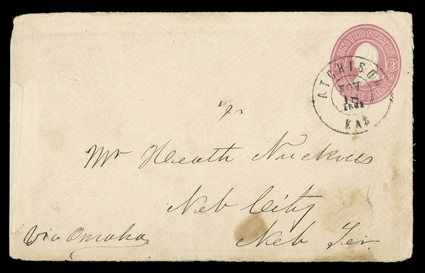 UNITED STATES
3
ATCHISON
NOV
15
1861
KAS
To
Mr Heath Nuckolls
Neb City
Neb Ter
Via Omaha